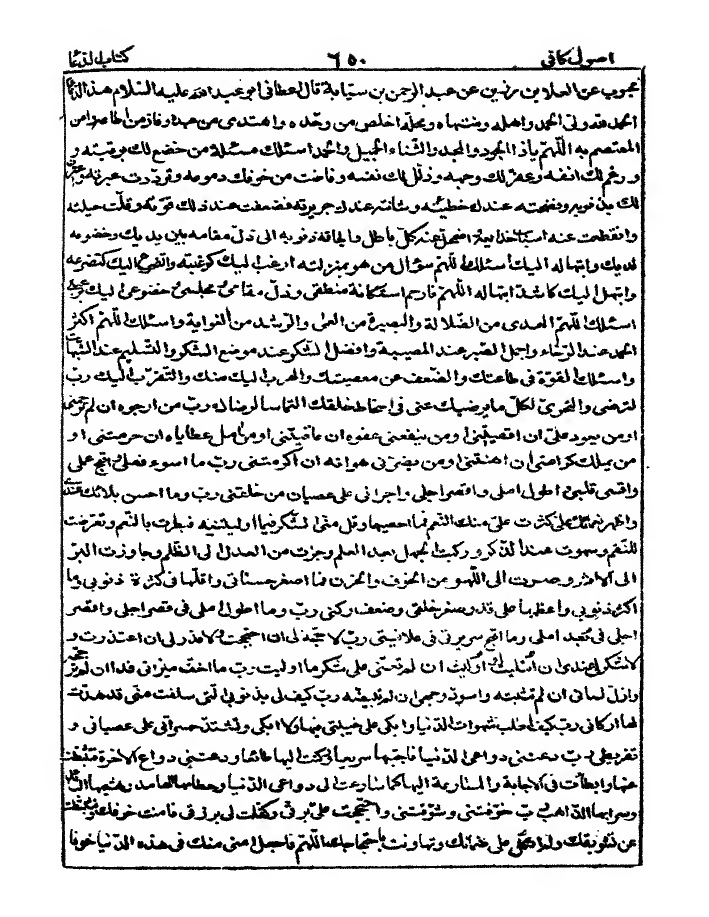 اصول کافی ٦٥٠ کتاب الدعا
محبوب عن العلاء بن رزین عن عبد الرحمن بن سیابة قال اعطانی ابو عبد الله علیه السلام هذا الدعا
الحمد لله ولی الحمد واهله ومنتهاه ومحله اخلص من وحده واهتدی من عبده وفاز من اطاعه وامن
المعتصم به اللّهم یا ذا الجود والمجد والثناء الجمیل والحمد اسئلك مسئلة من خضع لك برقبته و
ورغم لك انفه وعفر لك وجهه وذلل لك نفسه وفاضت من خوفك دموعه وترددت عبرته واعترف
لك بذنوبه وفضحته عندك خطیئته وشانته عندك جریرته فضعفت عند ذلك قوته وقلت حیلته
وانقطعت عنه اسباب خدایعه واضمحل عنه کل باطل والجأته ذنوبه الی ذل مقامه بین یدیك وخضوعه
لدیك وابتهاله الیك اسئلك اللّهم سؤال من هو بمنزلته ارغب الیك کرغبته واتضرع الیك کتضرعه
وابتهل الیك کاشد ابتهاله اللّهم فارحم استکانة منطقی وذل مقامی ومجلسی وخضوعی الیك برقبتی
اسئلك اللّهم الهدی من الضلالة والبصیرة من العمی والرشد من الغوایة واسئلك اللّهم اکثر
الحمد عند الرخاء واجمل الصبر عند المصیبة وافضل الشکر عند موضع الشکر والتسلیم عند الشبهات
واسئلك القوة فی طاعتك والضعف عن معصیتك والهرب الیك منك والتقرب الیك رب
لترضی والتحری لکل ما یرضیك عنی فی اسخاط خلقك التماسا لرضاك رب من ارجوه ان لم ترحمنی
او من یعود علیّ ان اقصیتنی او من ینفعنی عفوه ان عاقبتنی او من امل عطایاه ان حرمتنی او
من یملك کرامتی ان اهنتنی او من یضرنی هوانه ان اکرمتنی رب ما اسوء فعلی واقبح عملی
واقسی قلبی واطول املی واقصر اجلی واجرانی علی عصیان من خلقنی رب وما احسن بلائك عندی
واظهر نعمائك علیّ کثرت علیّ منك النعم فما احصیها وقل منی الشکر فیما اولیتنیه فبطرت بالنعم وتعرضت
للنقم وسهوت عن الذکر ورکبت الجهل بعد العلم وجزت من العدل الی الظلم وجاوزت البر
الی الاثم وصرت الی اللهو من الخوف والحزن فما اصغر حسناتی واقلها فی کثرة ذنوبی وما
اکثر ذنوبی واعظمها علی قدر صغر خلقی وضعف رکنی رب وما اطول املی فی قصر اجلی واقصر
اجلی فی بعد املی وما اقبح سریرتی فی علانیتی رب لا حجة لی ان احتججت ولا عذر لی ان اعتذرت و
لا شکر عندی ان ابتلیت او اولیت ان لم تعنی علی شکر ما اولیت رب ما اخف میزانی غدا ان لم ترجحه
وازل لسانی ان لم تثبته واسود وجهی ان لم تبیضه رب کیف لی بذنوبی التی سلفت منی قد هدت
لها ارکانی رب کیف اطلب شهوات الدنیا وابکی علی خیبتی فیها ولا ابکی وتشتد حسراتی علی عصیانی و
تفریطی رب دعتنی دواعی الدنیا فاجبتها سریعا ورکنت الیها طائعا ودعتنی دواعی الاخرة فتثبطت
عنها وابطأت فی الاجابة والمسارعة الیها کما سارعت الی دواعی الدنیا وحطامها الهامد وهشیمها البائد
وسرابها الذاهب رب خوفتنی وشوقتنی واحتججت علیّ برقی وکفلت لی برزقی فامنت خوفك وتثبطت
عن تشویقك ولم اتکل علی ضمانك وتهاونت باحتجاجك اللّهم فاجعل امنی منك فی هذه الدنیا خوفا